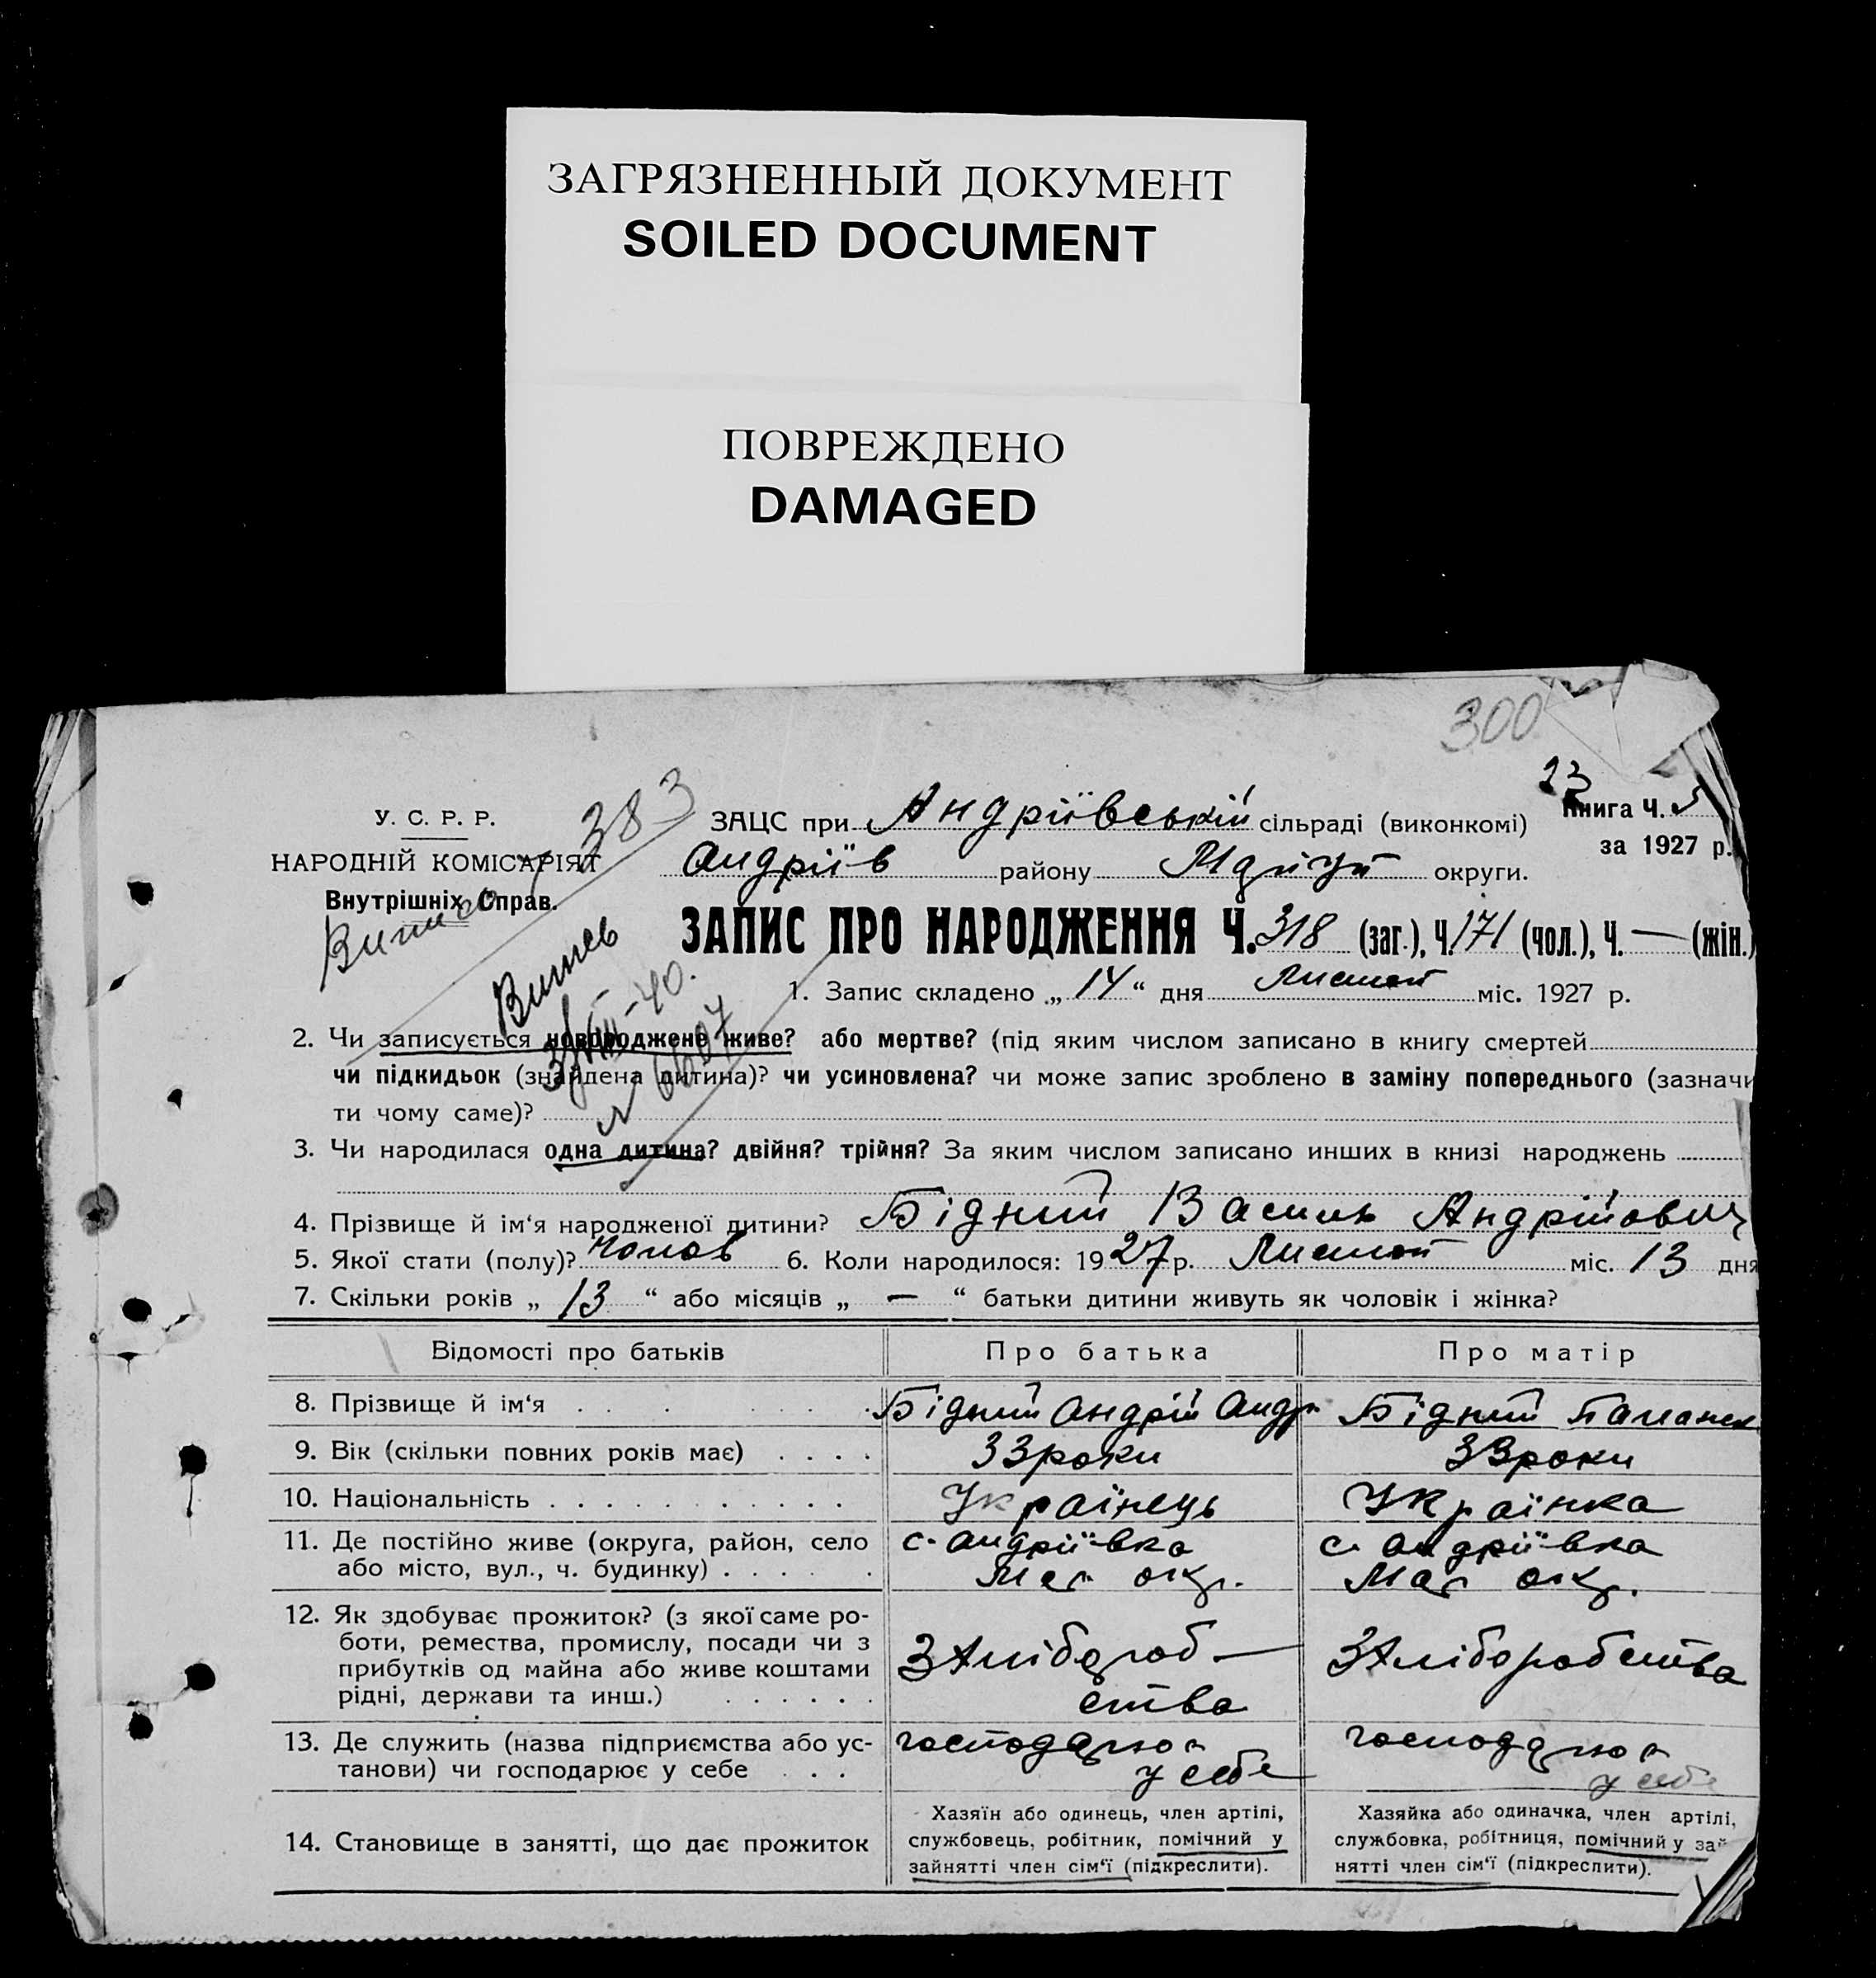 ЗАГРЯЗНЕННЫЙ ДОКУМЕНТ
SOILED DOCUMENT
ПОВРЕЖДЕНО
DAMAGED
300
23
У. С. Р. Р.
383
ЗАЦС при Андріївській сільраді (виконкомі)
Книга Ч. 5
за 1927 р.
НАРОДНІЙ КОМІСАРІЯТ
Андріїв району округи.
Внутрішніх Справ.
ЗАПИС ПРО НАРОДЖЕННЯ Ч. 318 (заг.), Ч. 171 (чол.), Ч. — (жін.)
1. Запис складено „ 14 “ дня Листоп міс. 1927 р.
2. Чи записується новороджене живе? або мертве? (під яким числом записано в книгу смертей
чи підкидьок (знайдена дитина)? чи усиновлена? чи може запис зроблено в заміну попереднього (зазначи
ти чому саме)?
3. Чи народилася одна дитина? двійня? трійня? За яким числом записано инших в книзі народжень
4. Прізвище й ім‘я народженої дитини? Бідний Василь Андрійович
5. Якої стати (полу)? чолов 6. Коли народилося: 1927 р. Листоп міс. 13 дня
7. Скільки років „ 13 “ або місяців „ — “ батьки дитини живуть як чоловік і жінка?
Відомості про батьків Про батька Про матір
8. Прізвище й ім‘я Бідний Андрій Андр Бідний
9. Вік (скільки повних років має) 33 роки 33 роки
10. Національність Українець Українка
11. Де постійно живе (округа, район, село с. Андріївка с. Андріївка
або місто, вул., ч. будинку) окр. окр.
12. Як здобуває прожиток? (з якої саме ро-
боти, ремества, промислу, посади чи з З хлібороб- З хліборобства
прибутків од майна або живе коштами
рідні, держави та инш.) ства
13. Де служить (назва підприємства або ус- господарює господарює
танови) чи господарює у себе у себе у себе
Хазяїн або одинець, член артілі, Хазяйка або одиначка, член артілі,
14. Становище в занятті, що дає прожиток службовець, робітник, помічний у службовка, робітниця, помічний у зай
зайнятті член сім‘ї (підкреслити). нятті член сім‘ї (підкреслити).